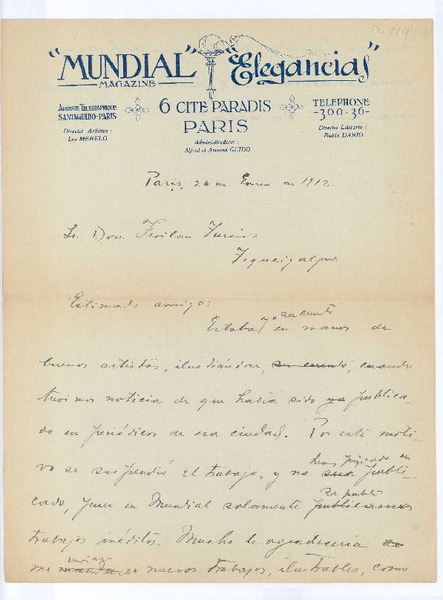 "MUNDIAL" "Elegancias"
MAGAZINE
ADRESSE TELEGRAPHIQUE
SANTAGUIDO-PARIS
6 CITÉ PARADIS
PARIS
TELEPHONE
-300-36-
Director Artístico:
Leo MERELO
Administradores:
Alfred et Armand GUIDO
Director Literario:
Rubén DARIO
Paris, 26 de Enero de 1912.
Sr. Don Froilan Turcios
Tegucigalpa
Estimado amigo:
su cuento
Estaba ya en manos de
buenos artistas, ilustrándose, su cuento, cuando
tuvimos noticia de que había sido ya publica-
do en periódicos de esa ciudad. Por este moti-
vo se suspendió el trabajo, y no
cado, pues en Mundial solamente publicamos
se publi
trabajos inéditos. Mucho le agradecería
me envíe nuevos trabajos, ilustrables, como